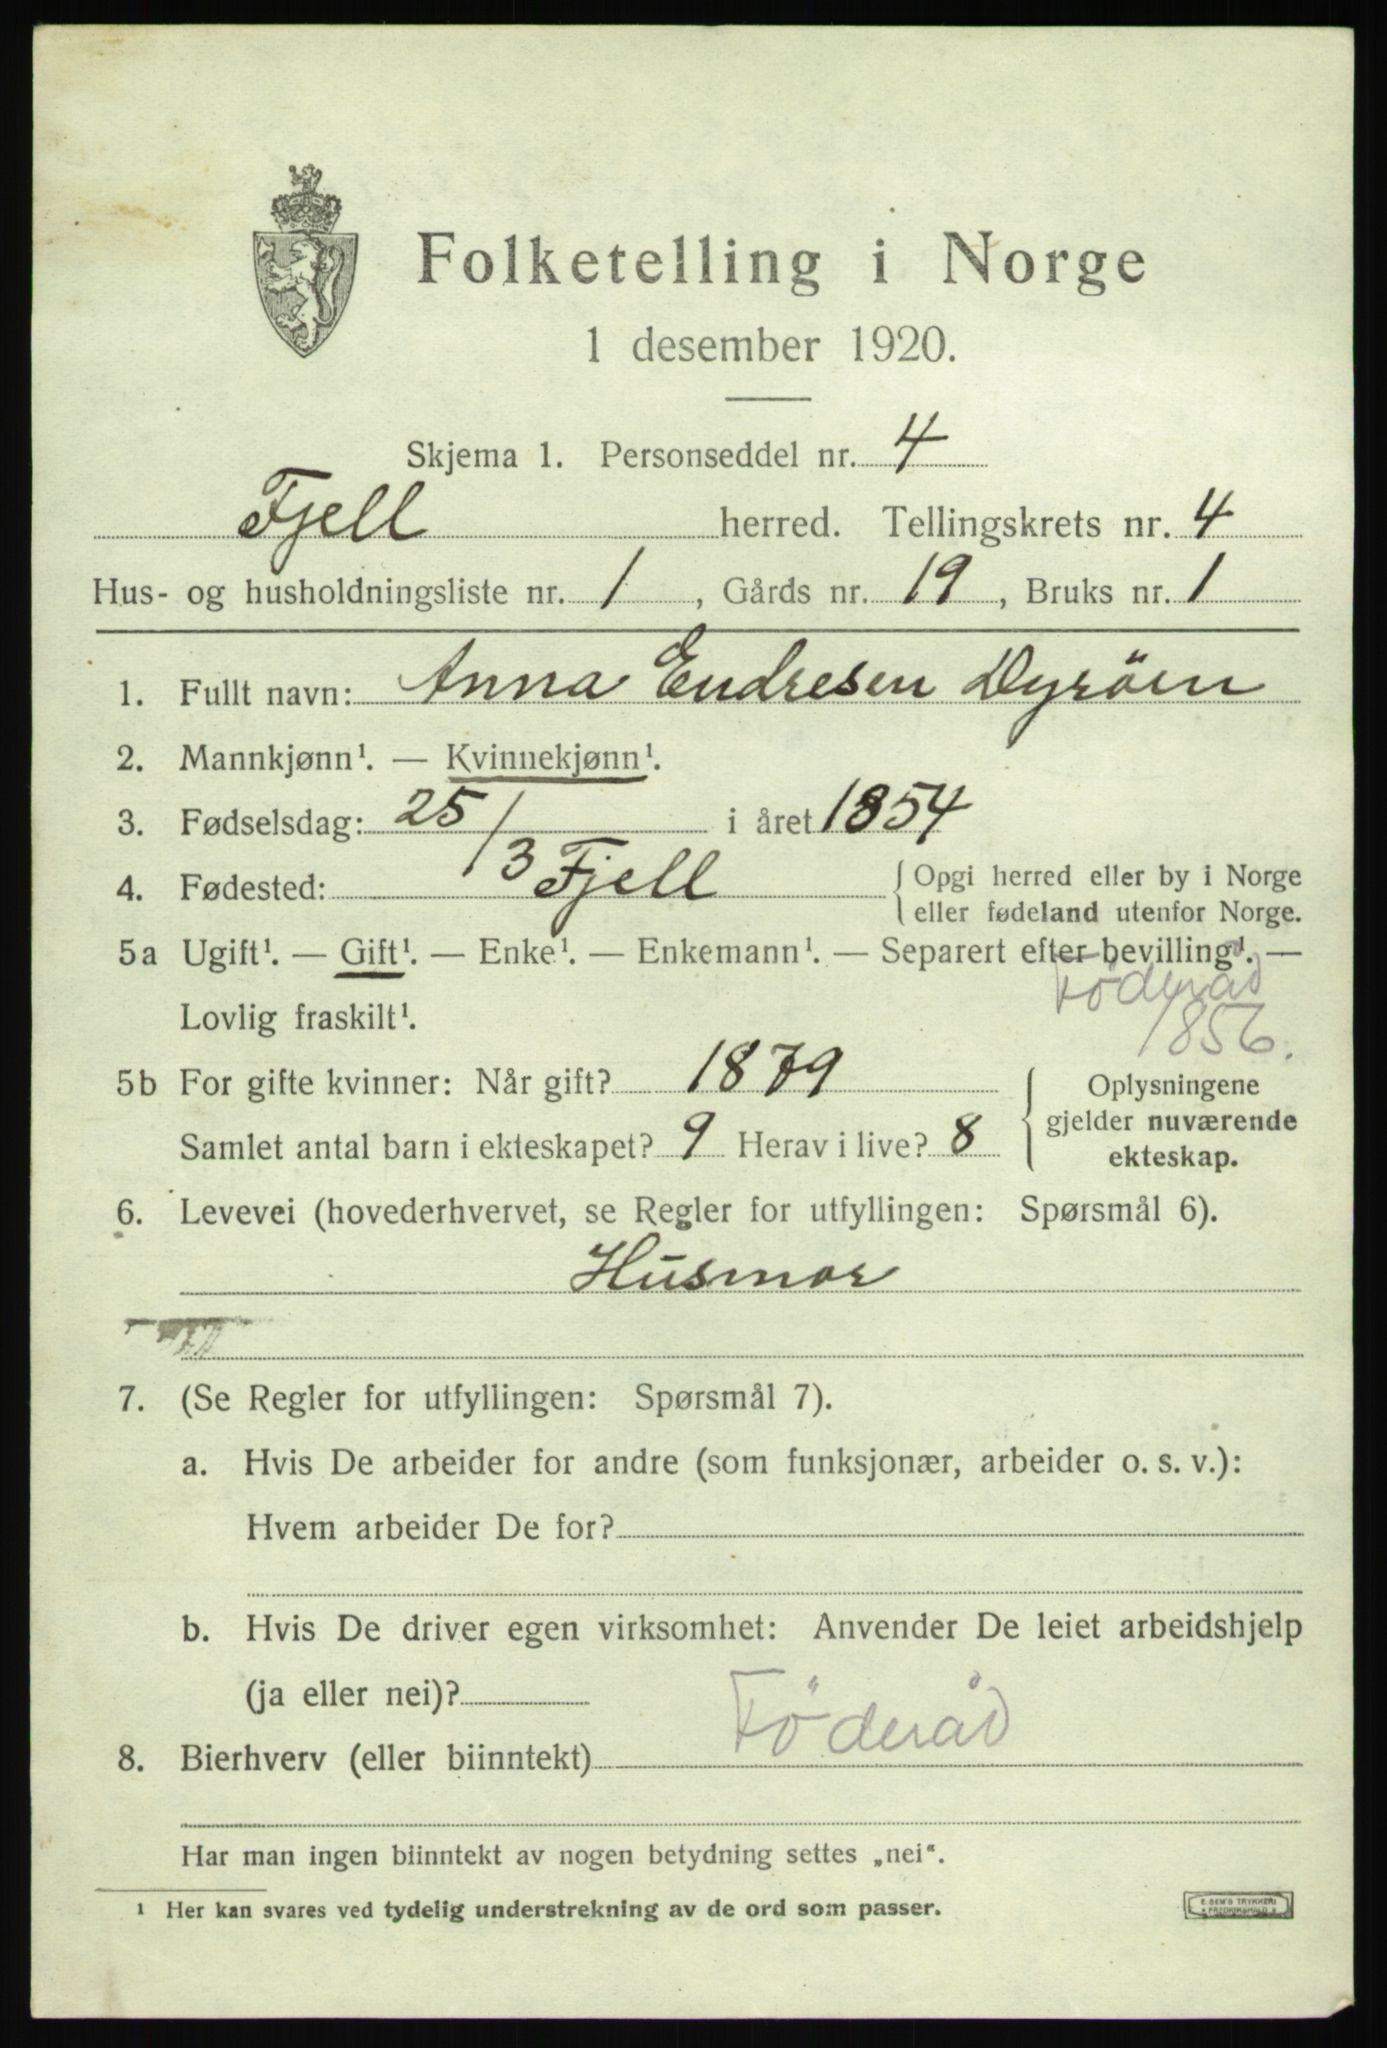 Folketelling i Norge
1 desember 1920.
Skjema 1. Personseddel nr. 4
Fjell herred. Tellingskrets nr. 4
Hus- og husholdningsliste nr. 1, Gårds nr. 19, Bruks nr. 1
1. Fullt navn: Anna Endresen Dyröen
2. Mannkjønn¹. — Kvinnekjønn¹.
3. Fødselsdag: 25/3 i året 1854
4. Fødested: Fjell { Opgi herred eller by i Norge
eller fødeland utenfor Norge.
5a Ugift¹. — Gift¹. — Enke¹. — Enkemann¹. — Separert efter bevilling¹. —
Föderåd
Lovlig fraskilt¹.
1856.
5b For gifte kvinner: Når gift? 1879
Samlet antal barn i ekteskapet? 9 Herav i live? 8
{ Oplysningene
gjelder nuværende
ekteskap.
6. Levevei (hovederhvervet, se Regler for utfyllingen: Spørsmål 6).
Husmor
7. (Se Regler for utfyllingen: Spørsmål 7).
a. Hvis De arbeider for andre (som funksjonær, arbeider o. s. v.):
Hvem arbeider De for?
b. Hvis De driver egen virksomhet: Anvender De leiet arbeidshjelp
(ja eller nei)?
8. Bierhverv (eller biinntekt) Föderåd
Har man ingen biinntekt av nogen betydning settes „nei“.
¹ Her kan svares ved tydelig understrekning av de ord som passer.
E. SEM'S TRYKKERI
FREDRIKSHALD